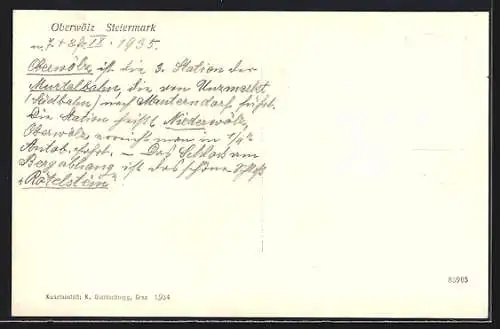 Oberwölz Steiermark
7. + 8. IX. 1935.
Oberwölz ist die 3. Station der
Murtalbahn, die von Unzmarkt
(Südbahn) nach Mauterndorf führt.
Die Station heißt Niederwölz,
Oberwölz erreicht man in 1/4 h
Autobusfahrt. — Das Schloss am
Bergabhang ist das schöne Schloß
„Rotelstein"
Kunstanstalt: K. Graz 1934